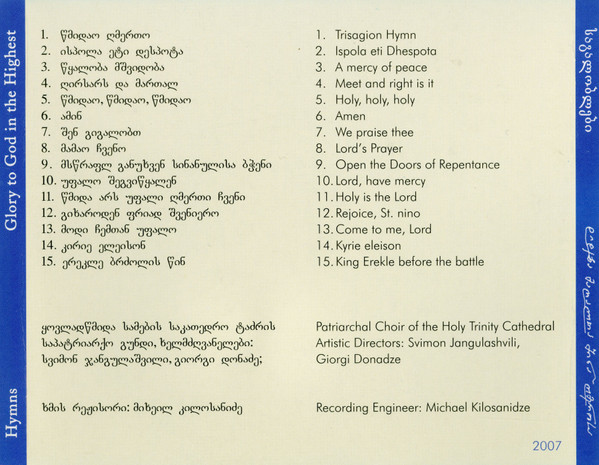 Glory to God in the Highest
Hymns
1. წმიდაო ღმერთო
2. ისპოლა ეტი დესპოტა
3. წყალობა მშვიდობა
4. ღირსარს და მართალ
5. წმიდაო, წმიდაო, წმიდაო
6. ამინ
7. შენ გიგალობთ
8. მამაო ჩვენო
9. მსწრაფლ განუხვენ სინანულისა ბჭენი
10. უფალო შეგვიწყალენ
11. წმიდა არს უფალი ღმერთი ჩვენი
12. გიხაროდენ ფრიად შვენიერო
13. მოდი ჩემთან უფალო
14. კირიე ელეისონ
15. ერეკლე ბრძოლის წინ
ყოვლადწმიდა სამების საკათედრო ტაძრის
საპატრიარქო გუნდი, ხელმძღვანელები:
სვიმონ ჯანგულაშვილი, გიორგი დონაძე;
ხმის რეჟისორი: მიხეილ კილოსანიძე
1. Trisagion Hymn
2. Ispola eti Dhespota
3. A mercy of peace
4. Meet and right is it
5. Holy, holy, holy
6. Amen
7. We praise thee
8. Lord's Prayer
9. Open the Doors of Repentance
10. Lord, have mercy
11. Holy is the Lord
12. Rejoice, St. nino
13. Come to me, Lord
14. Kyrie eleison
15. King Erekle before the battle
Patriarchal Choir of the Holy Trinity Cathedral
Artistic Directors: Svimon Jangulashvili,
Giorgi Donadze
Recording Engineer: Michael Kilosanidze
2007
საგალობლები